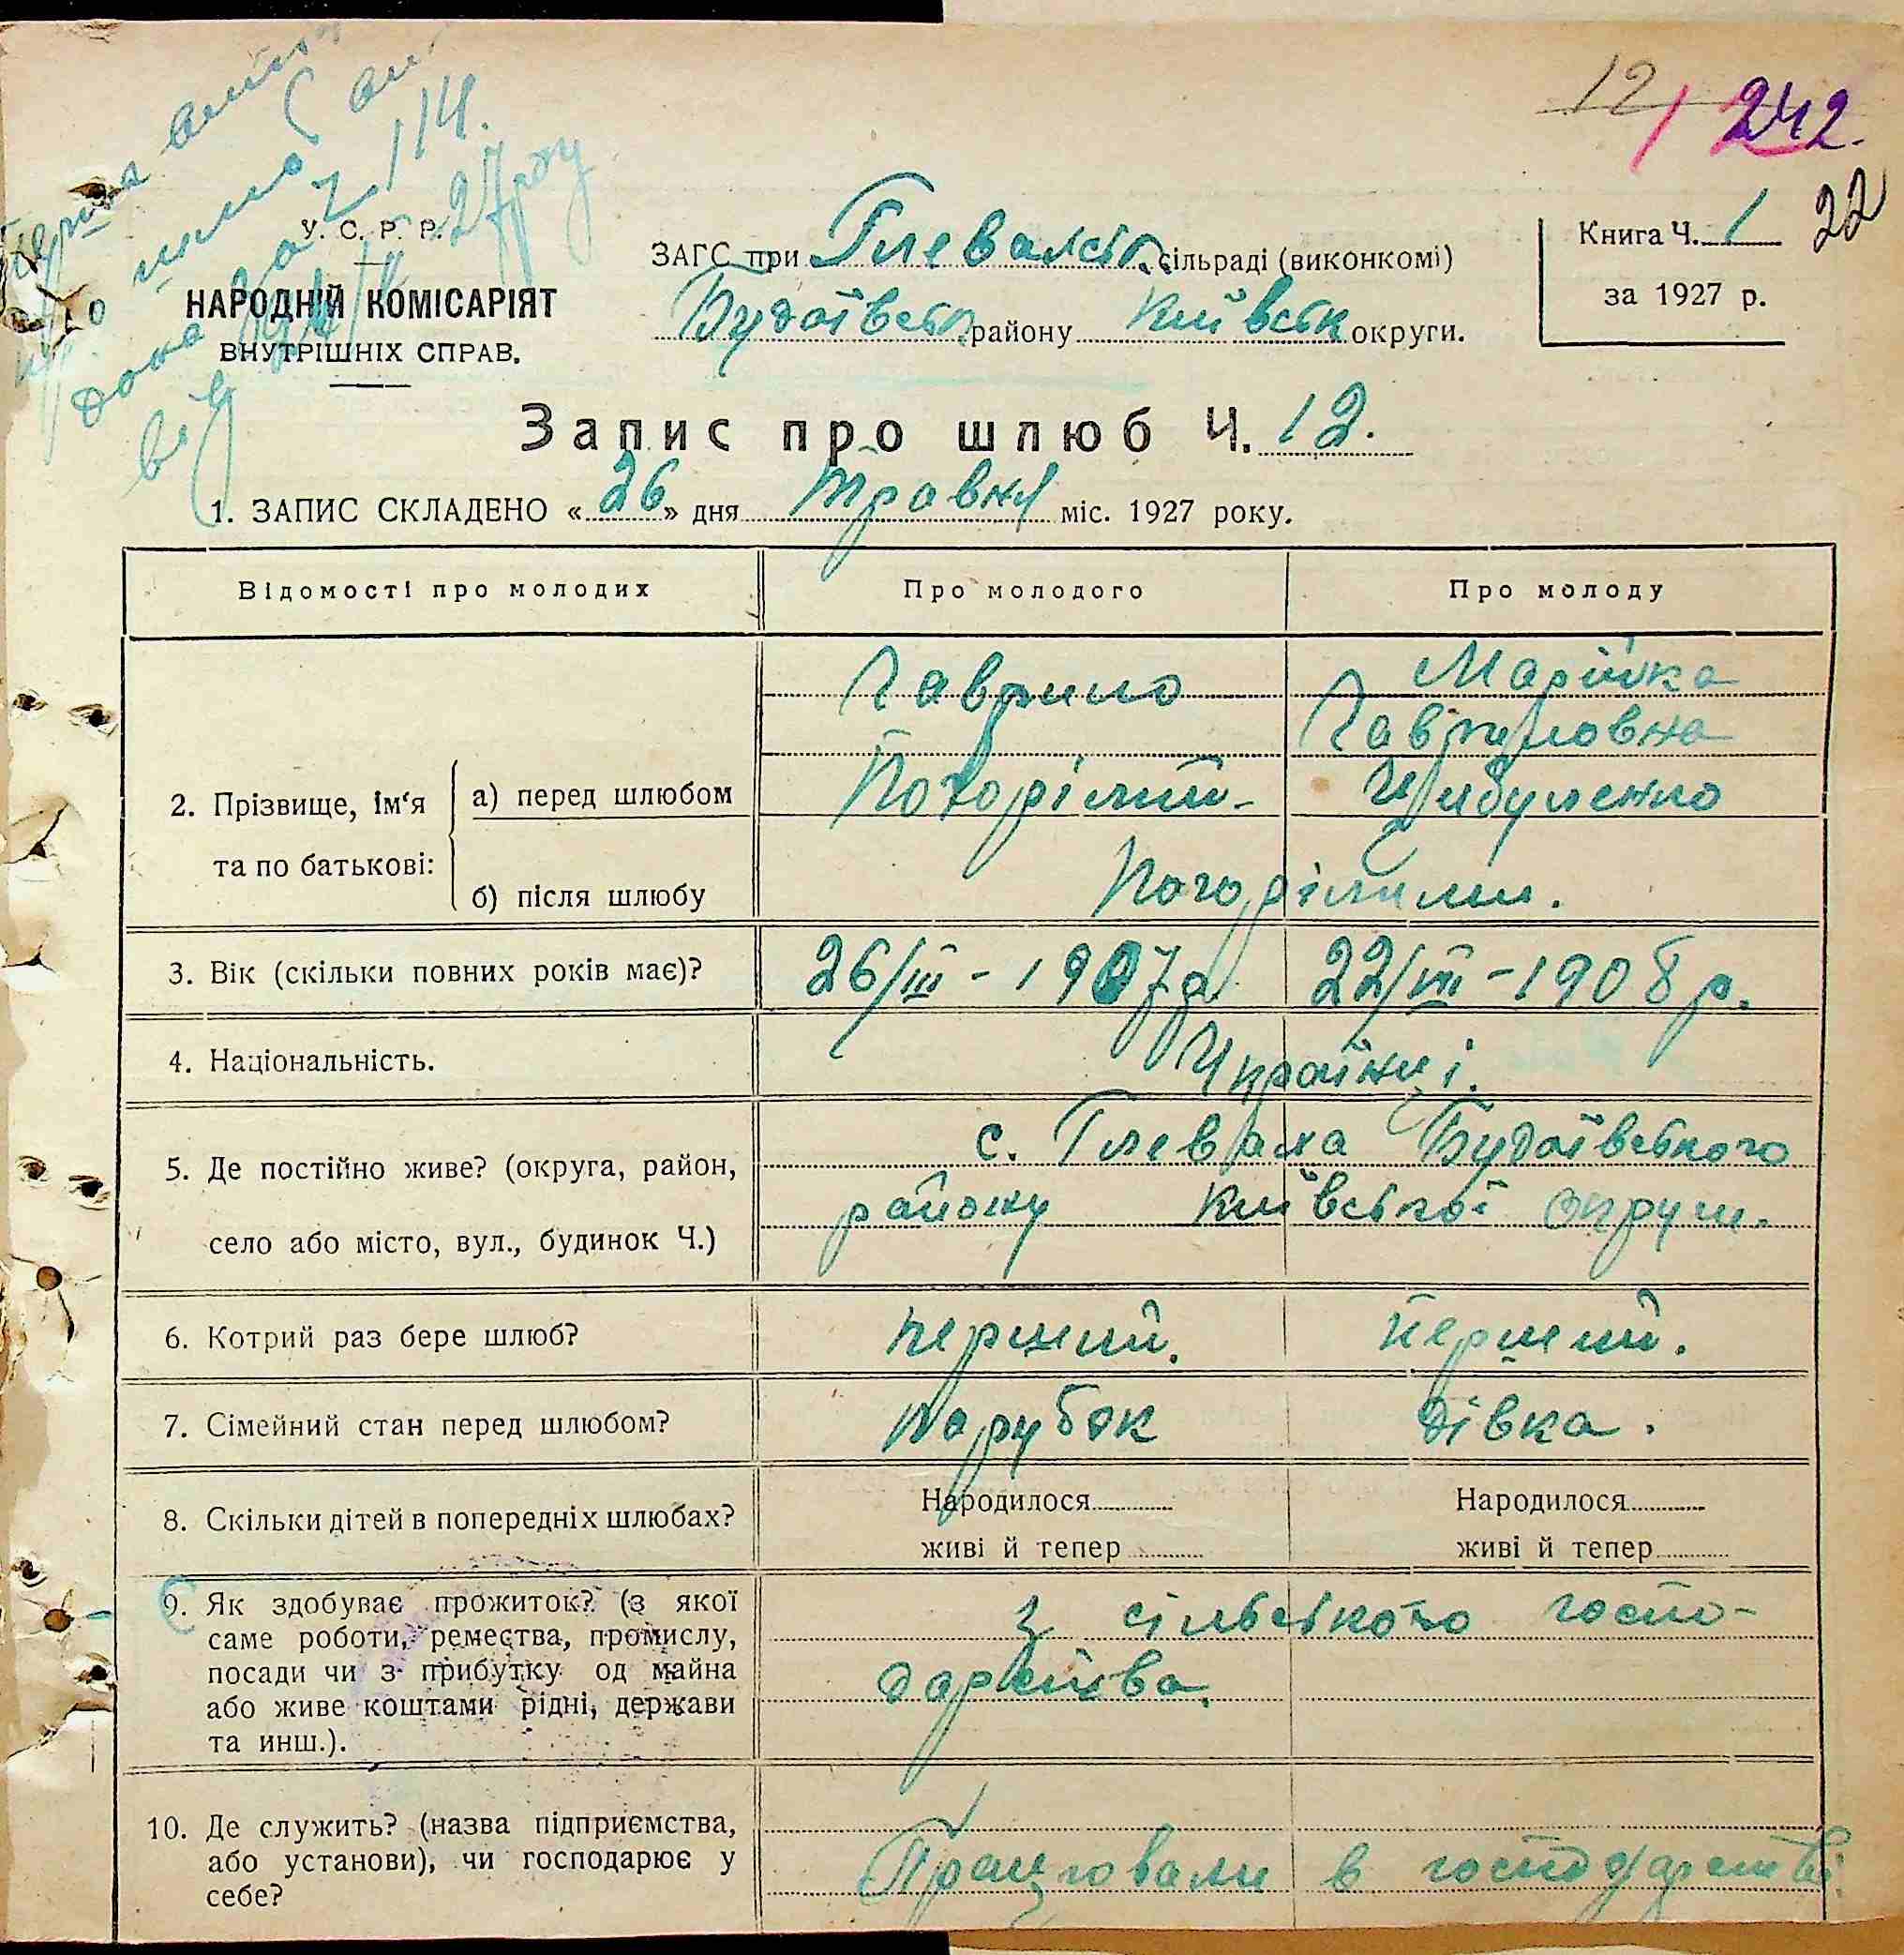 12/ 242.
22
27 року
У. С. Р. Р.
НАРОДНІЙ КОМІСАРІЯТ
ВНУТРІШНІХ СПРАВ.
ЗАГС при Глевахськ. сільраді (виконкомі)
Будаївськ району Київськ округи.
Книга Ч. 1
за 1927 р.
Запис про шлюб Ч. 12.
1. ЗАПИС СКЛАДЕНО «26» дня Травня міс. 1927 року.
Відомості про молодих Про молодого Про молоду
2. Прізвище, ім‘я та по батькові:
а) перед шлюбом
Гаврило
Погорілий-
Марійка
Гавриловна
Цибуленко
б) після шлюбу
Погорілими.
3. Вік (скільки повних років має)? 26/III - 1907 р. 22/VII - 1908 р.
4. Національність. Українці.
5. Де постійно живе? (округа, район,
село або місто, вул., будинок Ч.)
с. Глеваха Будаївського
району Київської округи.
6. Котрий раз бере шлюб? перший. перший.
7. Сімейний стан перед шлюбом? парубок дівка.
8. Скільки дітей в попередніх шлюбах?
Народилося
живі й тепер
Народилося
живі й тепер
9. Як здобуває прожиток? (з якої
саме роботи, ремества, промислу,
посади чи з прибутку од майна
або живе коштами рідні, держави
та инш.).
з сільського госпо-
дарства.
10. Де служить? (назва підприємства,
або установи), чи господарює у
себе?
Працювали в господарстві.